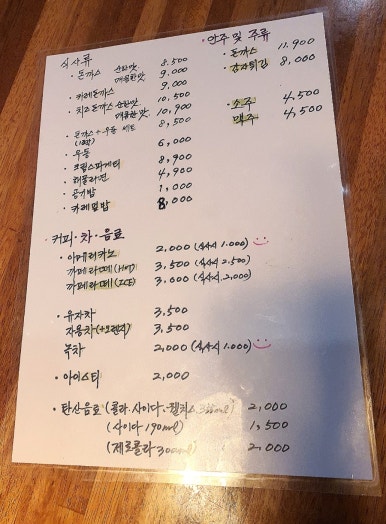 식사류
· 돈까스 순한맛 8,500
매콤한맛 9,000
· 카레돈까스 9,000
· 치즈돈까스 순한맛 10,500
매콤한맛 10,900
· 돈까스+우동 세트 8,500
(1인)
· 우동 6,000
· 크림스파게티 8,900
· 해물라면 4,900
· 공기밥 1,000
· 카레덮밥 8,000
· 안주 및 주류
· 돈까스 11,900
· 감자튀김 8,000
· 소주 4,500
· 맥주 4,500
커피·차·음료
· 아메리카노 2,000 (식사시 1,000)
· 까페라떼(HOT) 3,500 (식사시 2,500)
· 까페라떼(ICE) 3,000 (식사시 2,000)
· 유자차 3,500
· 자몽차(+오렌지) 3,500
· 녹차 2,000 (식사시 1,000)
· 아이스티 2,000
· 탄산음료 (콜라·사이다·웰치스 355ml) 2,000
(사이다 190ml) 1,500
(제로콜라 300ml) 2,000